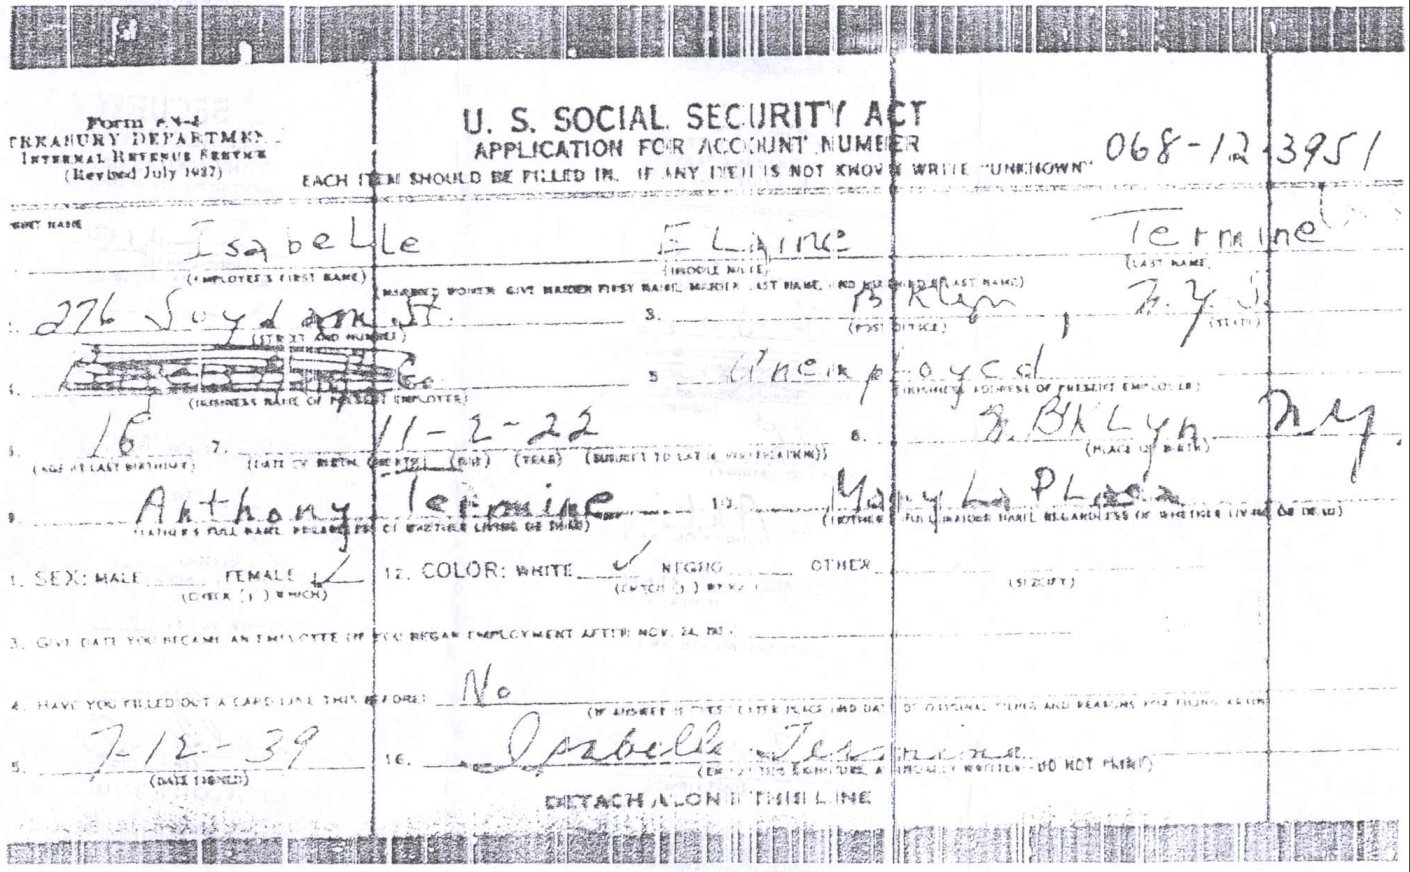 Form SS-4
TREASURY DEPARTMENT
INTERNAL REVENUE SERVICE
(Revised July 1937)
U. S. SOCIAL SECURITY ACT
APPLICATION FOR ACCOUNT NUMBER
068-12-3951
EACH ITEM SHOULD BE FILLED IN. IF ANY ITEM IS NOT KNOWN WRITE "UNKNOWN"
PRINT NAME
Isabelle ELaine Termine
(EMPLOYEE'S FIRST NAME) (MIDDLE NAME) (LAST NAME)
(MARRIED WOMEN GIVE MAIDEN FIRST NAME, MAIDEN LAST NAME, AND HUSBAND'S LAST NAME)
2. 276 Suydam St. 3. BKlyn, N.Y.
(STREET AND NUMBER) (POST OFFICE) (STATE)
4. 5 Unemployed
(BUSINESS NAME OF PRESENT EMPLOYER) (BUSINESS ADDRESS OF PRESENT EMPLOYER)
16 7. 11-2-22 8. BKLyn N.Y.
(AGE AT LAST BIRTHDAY) (DATE OF BIRTH: (MONTH) (DAY) (YEAR) (SUBJECT TO LATER VERIFICATION)) (PLACE OF BIRTH)
9. Anthony Termine 10. Mary La PLada
(FATHER'S FULL NAME, REGARDLESS OF WHETHER LIVING OR DEAD) (MOTHER'S FULL MAIDEN NAME, REGARDLESS OF WHETHER LIVING OR DEAD)
1. SEX: MALE FEMALE ✓ 12. COLOR: WHITE ✓ NEGRO OTHER
(CHECK (✓) WHICH) (CHECK (✓) WHICH) (SPECIFY)
3. GIVE DATE YOU BECAME AN EMPLOYEE (IF YOU BEGAN EMPLOYMENT AFTER NOV. 24, 1936)
4. HAVE YOU FILLED OUT A CARD LIKE THIS BEFORE? No
(IF ANSWER IS "YES" ENTER PLACE AND DATE OF ORIGINAL FILING AND REASONS FOR FILING AGAIN)
5. 7-12-39 16. Isabelle Termine
(DATE SIGNED) (EMPLOYEE'S SIGNATURE, AS USUALLY WRITTEN—DO NOT PRINT)
DETACH ALONG THIS LINE